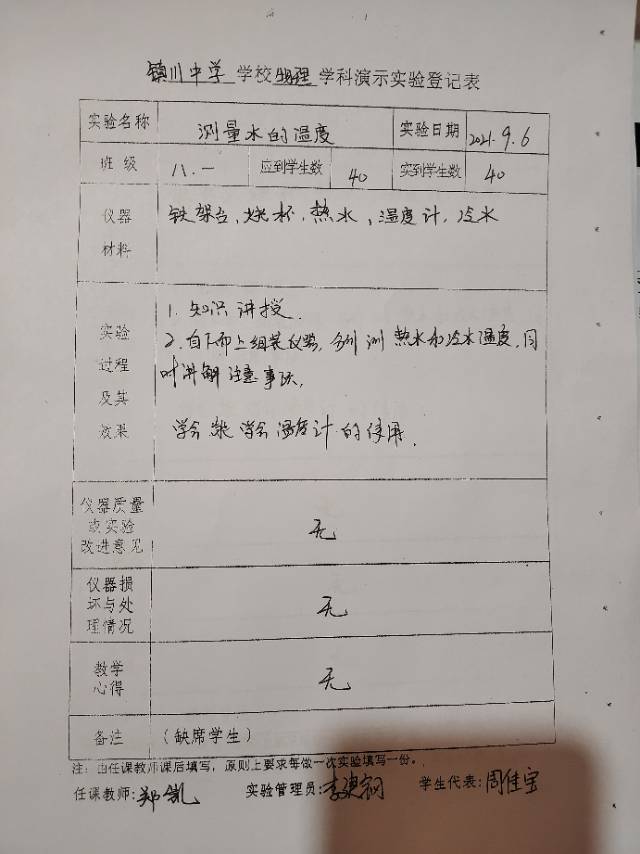 镇川中学 学校 物理 学科演示实验登记表
实验名称 测量水的温度 实验日期 2021.9.6
班级 八.一 应到学生数 40 实到学生数 40
仪器材料 铁架台，烧杯，热水，温度计，冷水
实验过程及其效果
1. 知识讲授．
2. 自下而上组装仪器，分别测热水和冷水温度，同
时讲解注意事项．
学会 学会温度计的使用．
仪器质量或实验改进意见 无
仪器损坏与处理情况 无
教学心得 无
备注 （缺席学生）
注：由任课教师课后填写，原则上要求每做一次实验填写一份。
任课教师：郑 实验管理员：李建 学生代表：周佳宝